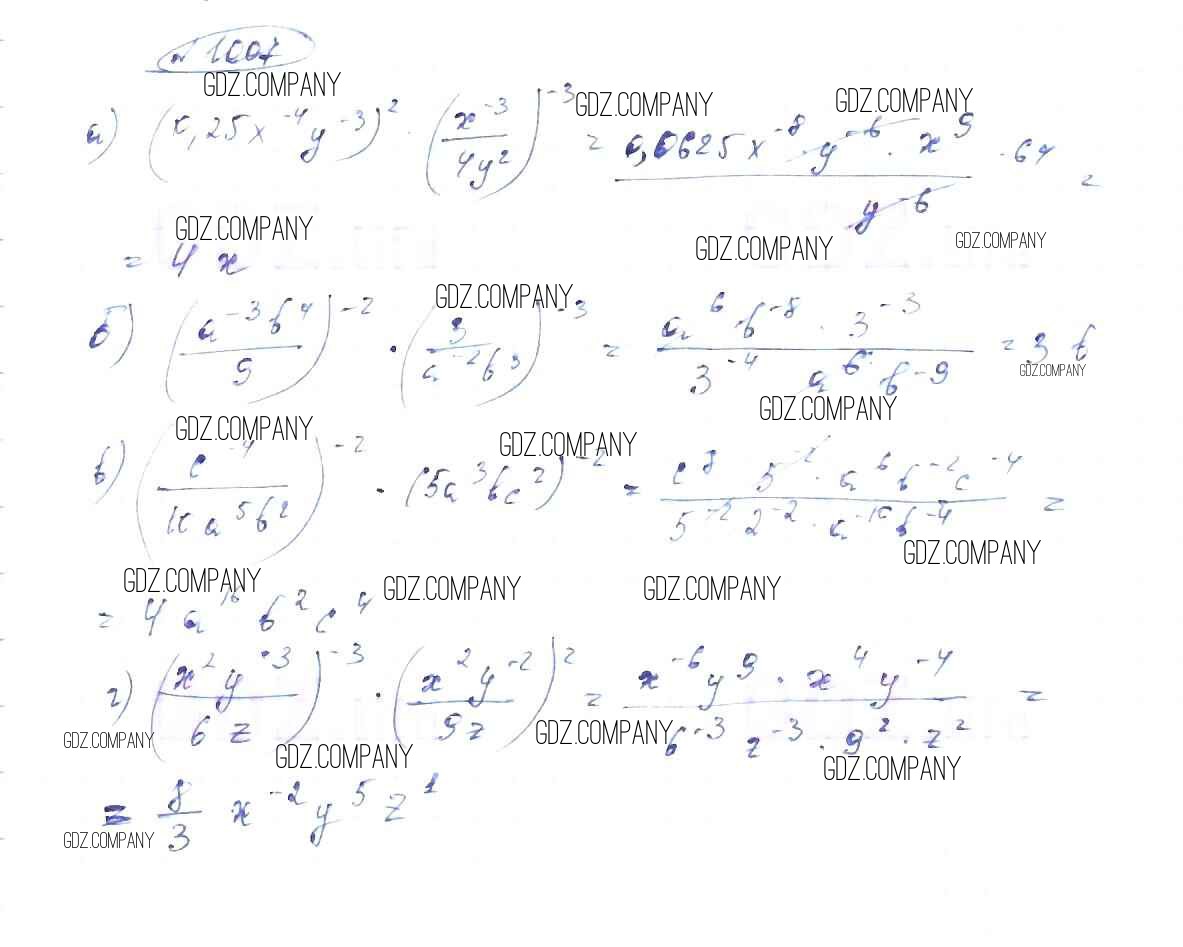 № 1007
GDZ.COMPANY
GDZ.COMPANY GDZ.COMPANY
а) (0,25x⁻⁴y⁻³)² · (x⁻³/4y²)⁻³ = 0,0625x⁻⁸y⁻⁶ · x⁹/y⁻⁶ · 64 =
GDZ.COMPANY GDZ.COMPANY GDZ.COMPANY
= 4x
GDZ.COMPANY
б) (a⁻³b⁴/9)⁻² · (3/a⁻²b³)⁻³ = a⁶b⁻⁸ · 3⁻³/3⁻⁴ a⁶b⁻⁹ = 3b
GDZ.COMPANY
GDZ.COMPANY
GDZ.COMPANY GDZ.COMPANY
в) (c⁻⁴/10a⁵b²)⁻² · (5a³bc²)⁻² = c⁸ 5⁻² · a⁶b⁻²c⁻⁴/5⁻²2⁻² · a⁻¹⁰b⁻⁴ =
GDZ.COMPANY
GDZ.COMPANY GDZ.COMPANY GDZ.COMPANY
= 4a¹⁶b²c⁴
г) (x²y⁻³/6z)⁻³ · (x²y⁻²/9z)² = x⁻⁶y⁹ · x⁴y⁻⁴/6⁻³z⁻³ · 9² · z² =
GDZ.COMPANY GDZ.COMPANY
GDZ.COMPANY GDZ.COMPANY
= 8/3 x⁻²y⁵z¹
GDZ.COMPANY